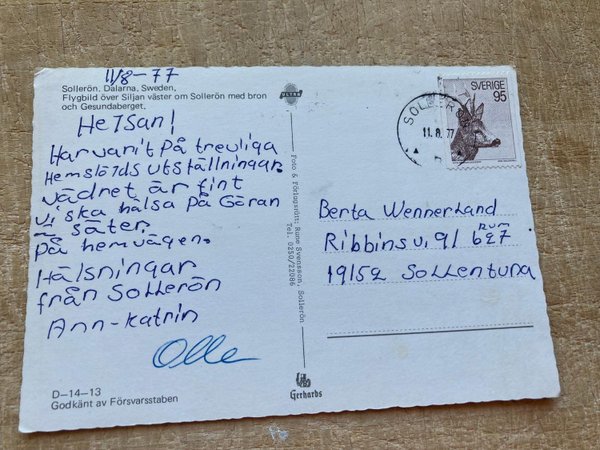 11/8-77
Sollerön, Dalarna, Sweden,
Flygbild över Siljan väster om Sollerön med bron
och Gesundaberget.
ULTRA
Hejsan!
Har vanit på trevliga
Hemslöjds utställningar
Vädret är fint
Vi ska hälsa på Göran
i säter
på hemvägen.
Hälsningar
från Sollerön
Ann-Katrin
Olle
D-14-13
Godkänt av Försvarsstaben
Foto & Förlagsrätt: Rune Svensson, Sollerön
Tel. 0250/22086
Gerhards
SOLLER
11.8.77
SVERIGE
95
Berta Wennerlund
Ribbings v. 91 rum 627
19152 Sollentuna